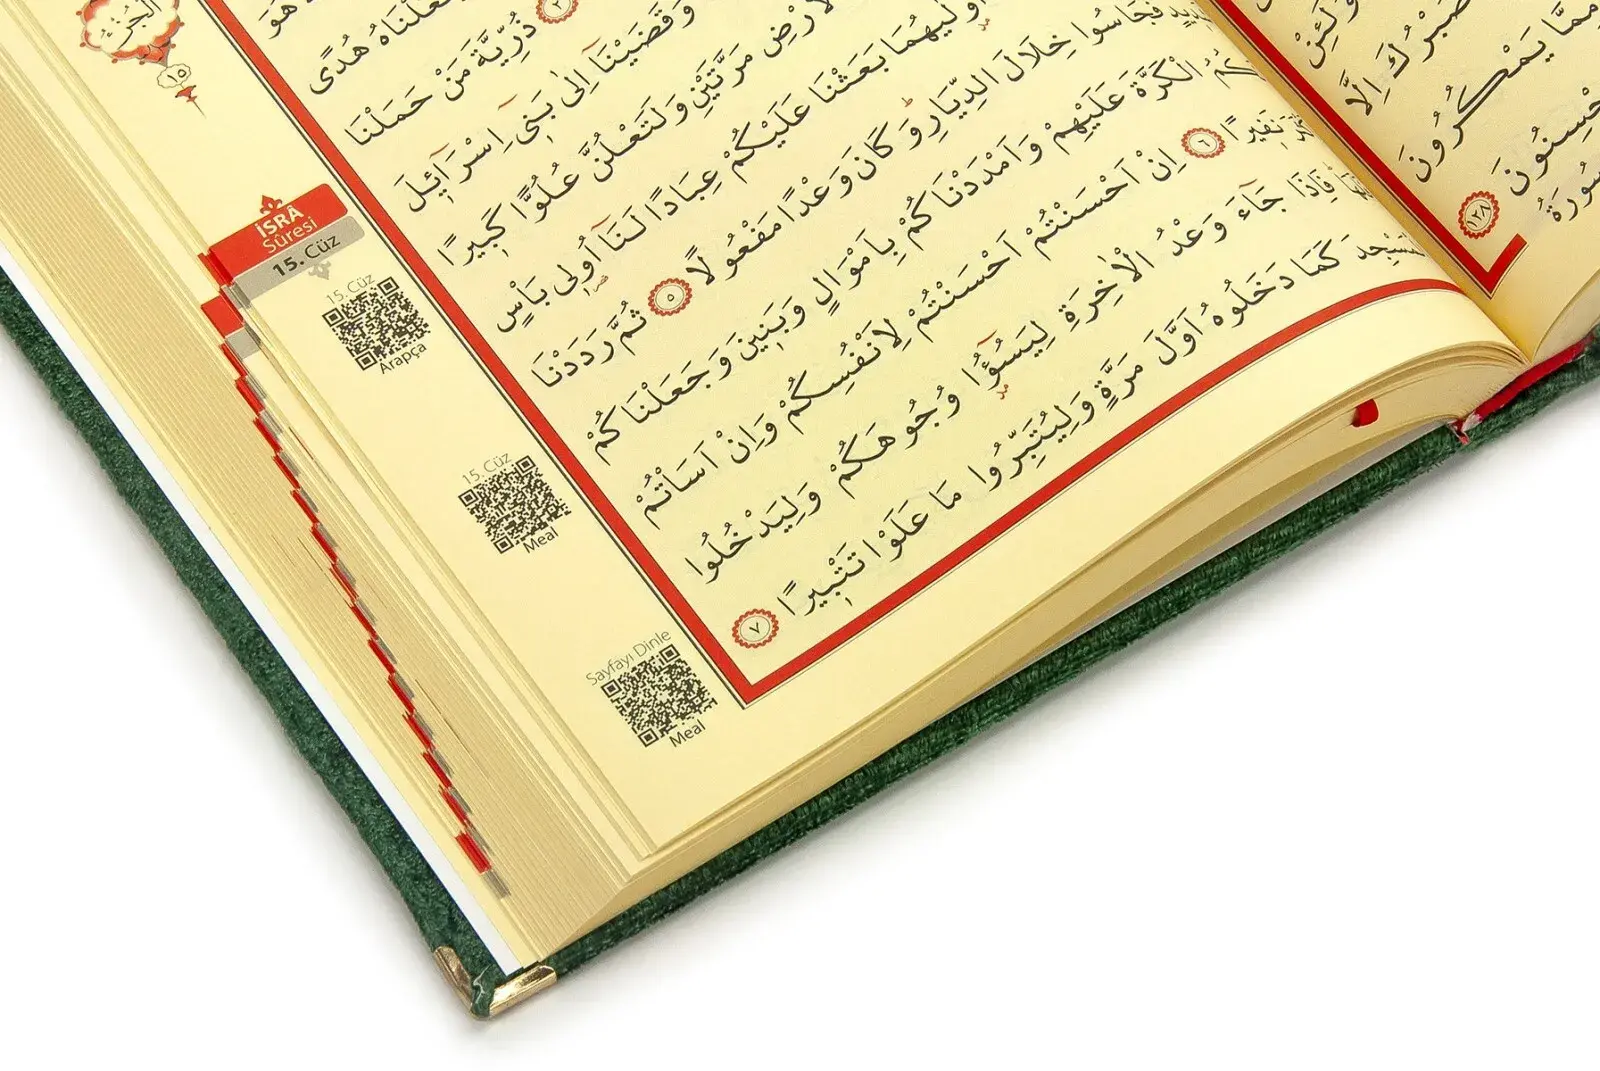 هُدًى
ذُرِّيَّةَ مَنْ حَمَلْنَا
وَقَضَيْنَٓا اِلٰى بَنٓى اِسْرَٓائٖلَ
مَرَّتَيْنِ وَلَتَعْلُنَّ عُلُوًّا كَبٖيرًا
اُولٰيهُمَا بَعَثْنَا عَلَيْكُمْ عِبَادًا لَنَٓا اُولٖى بَأْسٍ
فَجَاسُوا خِلَالَ الدِّيَارِ وَكَانَ وَعْدًا مَفْعُولًا ٥ ثُمَّ رَدَدْنَا
الْكَرَّةَ عَلَيْهِمْ وَاَمْدَدْنَاكُمْ بِاَمْوَالٍ وَبَنٖينَ وَجَعَلْنَاكُمْ
نَفٖيرًا ٦ اِنْ اَحْسَنْتُمْ اَحْسَنْتُمْ لِاَنْفُسِكُمْ وَاِنْ اَسَاْتُمْ
فَاِذَا جَٓاءَ وَعْدُ الْاٰخِرَةِ لِيَسُٓؤُا وُجُوهَكُمْ وَلِيَدْخُلُوا
كَمَا دَخَلُوهُ اَوَّلَ مَرَّةٍ وَلِيُتَبِّرُوا مَا عَلَوْا تَتْبٖيرًا ٧
يَمْكُرُونَ
١٢٨
سُورَةُ
اَلْجُزْءُ
١٥
İSRÂ
Sûresi
15. Cüz
15. Cüz
Arapça
15. Cüz
Meal
Sayfayı Dinle
Meal